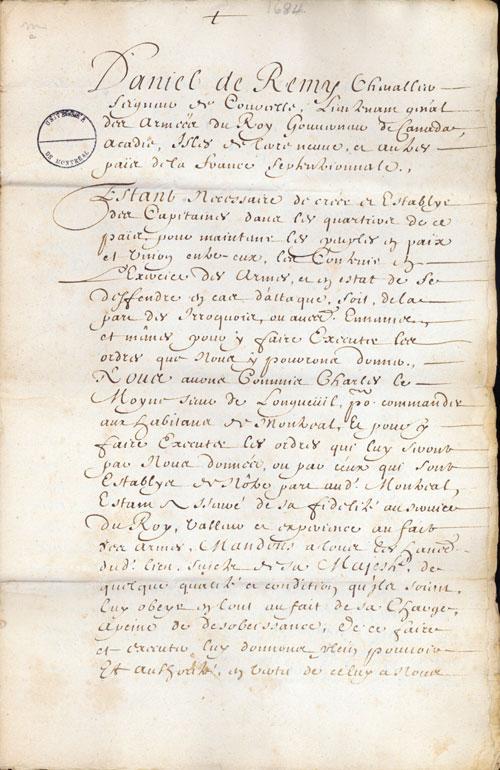 1684
UNIVERSITÉ
DE MONTRÉAL
Daniel de Remy Chevallier
Seigneur de Courcelle, Lieutenant gñal
des Armées du Roy Gouverneur de Canada,
Acadie, Isles de terre neuve, et autres
païs de la France Septentrionnale,
Estant Necessaire de créer et Establye
des Capitaines dans les quartiers de ce
païs, pour maintenir les peuples en paix
et Vnion entre eux, les Contenir en
L'Exercice des Armes, et en estat de Se
deffendre en cas d'attaque, soit, de la
part des Irroquois, ou autres Ennemis,
et mêmes pour y faire Executer les
ordres que Nous y pourrons donner,
Nous avons Commis Charles le
Moyne sieur de Longueüil, po. commander
aux habitans de Montreal, Et pour y
faire Executer les ordres qui luy seront
par Nous données, ou par ceux qui sont
Establys de Nôtre part aud. Montreal,
Estant Assuré de sa fidelité au service
du Roy, Valleur et experience au fait
des Armes, Mandons a tous les
dud. lieu, Sujets de sa Majesté, de
quelque qualité et condition qu'ils soient,
luy obeyr en tout au fait de sa Charge,
a peine de desobeissance, De ce faire
et executer luy donnons plein pouvoir
Et authorité, en vertu de celuy a Nous